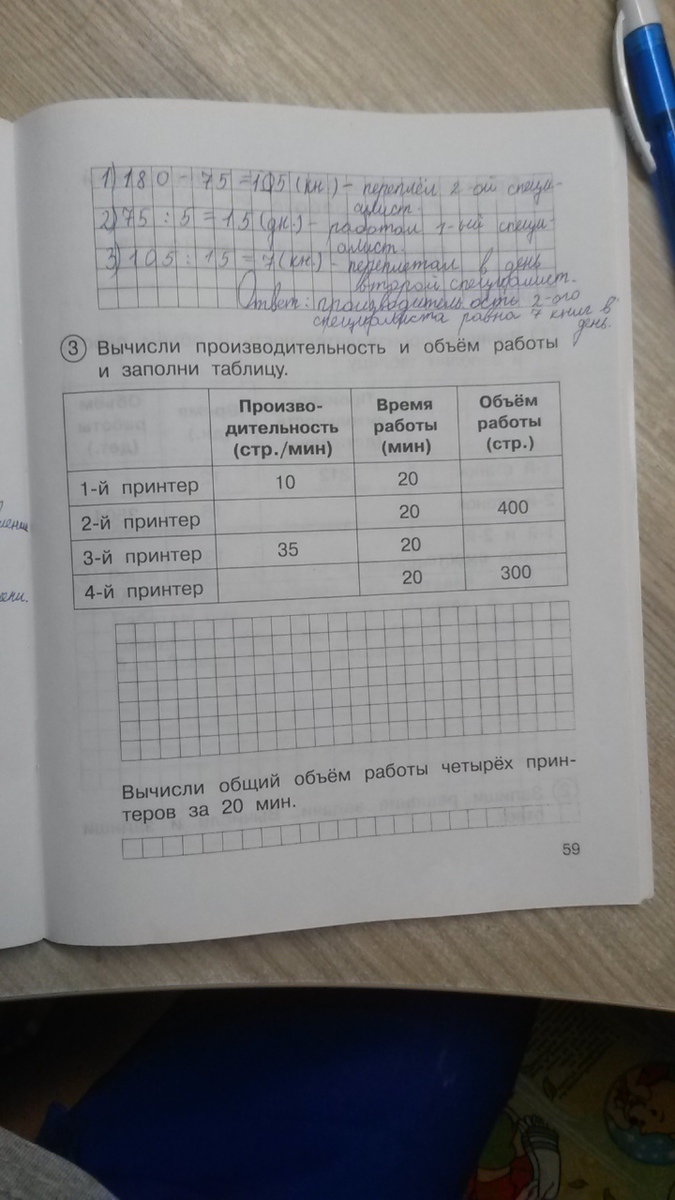 1) 180 - 75 = 105 (кн.) - переплёл 2-ой специ-
алист.
2) 75 : 5 = 15 (дн.) - работал 1-ый специ-
алист
3) 105 : 15 = 7 (кн.) - переплетал в день
второй специалист.
Ответ: производительность 2-ого
специалиста равна 7 книг в
день.
3 Вычисли производительность и объём работы
и заполни таблицу.
Произво- Время Объём
дительность работы работы
(стр./мин) (мин) (стр.)
1-й принтер 10 20
2-й принтер 20 400
3-й принтер 35 20
4-й принтер 20 300
Вычисли общий объём работы четырёх прин-
теров за 20 мин.
59